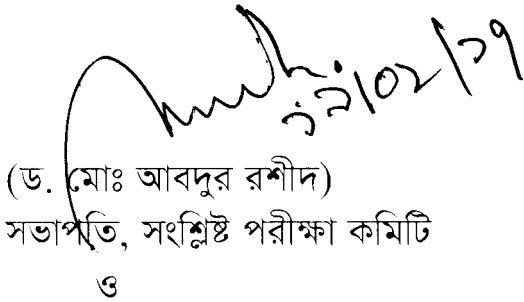 (ড. মোঃ আবদুর রশীদ)
সভাপতি, সংশ্লিষ্ট পরীক্ষা কমিটি
ও